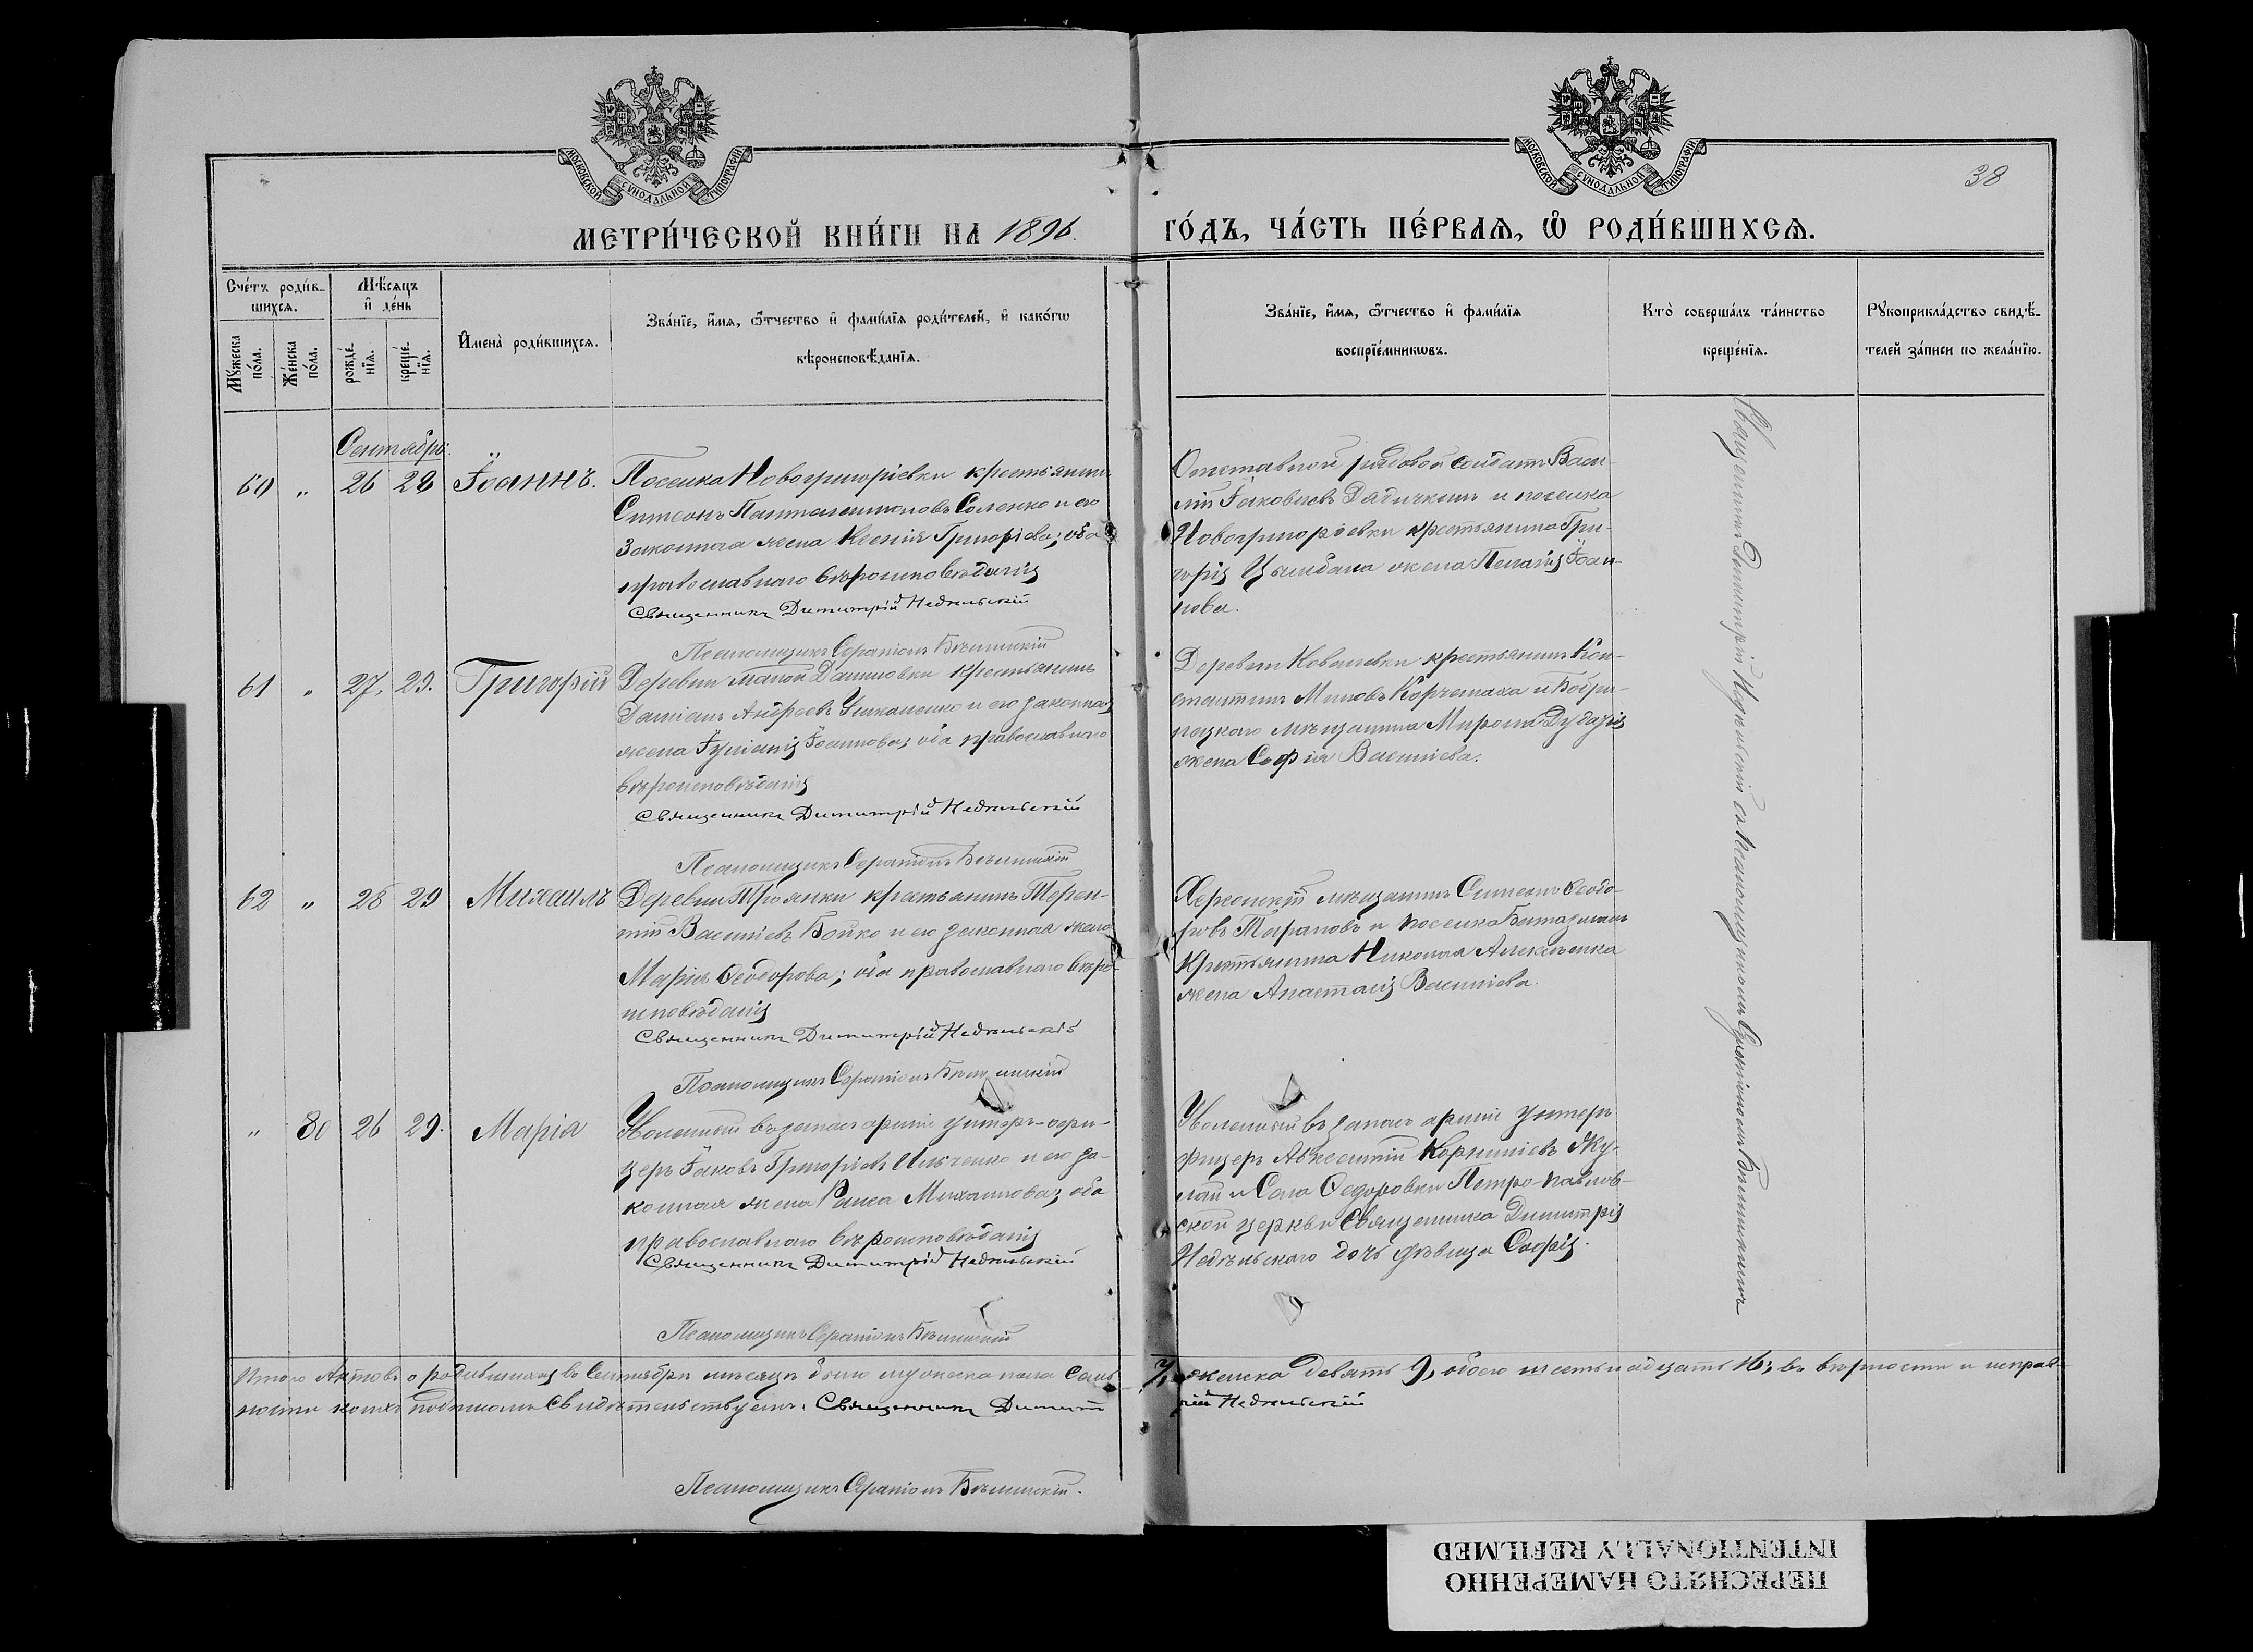 МОСКОВСКОЙ СѴНОДАЛЬНОЙ ТИПОГРАФІИ
МОСКОВСКОЙ СѴНОДАЛЬНОЙ ТИПОГРАФІИ
38
МЕТРИ́ЧЕСКОЙ КНИ́ГИ НА 1896. ГО́ДЪ, ЧА́СТЬ ПЕ́РВАѦ, Ѡ РОДИ́ВШИХСѦ.
Сче́тъ роди́в-
шихсѧ.
Мѣ́сѧцъ
и҆ де́нь
Мꙋ́жеска по́ла.
Же́нска по́ла.
рожде́нїѧ.
креще́нїѧ.
И҆мена̀ роди́вшихсѧ.
Зва́нїе, и҆́мѧ, ѻ҆́тчество и҆ фами́лїѧ роди́телей, и҆ како́гѡ
вѣроисповѣ́данїѧ.
Зва́нїе, и҆́мѧ, ѻ҆́тчество и҆ фами́лїѧ
воспрїе́мникѡвъ.
Кто̀ соверша́лъ та́инство
креще́нїѧ.
Рꙋкоприкла́дство свидѣ́-
телей за́писи по жела́нїю.
Сентябрь.
60 " 26 28 Іоаннъ.
Поселка Новогригоріевки крестьянинъ
Симеонъ Пантелеимоновъ Соленко и его
законная жена Ксенія Григоріева; оба
православнаго вѣроисповѣданія
Священникъ Димитрій Недѣльскій
Псаломщикъ Серапіонъ Бѣлинскій
Отставной рядовой солдатъ Васи-
лій Іаковлевъ Дядичкинъ и поселка
Новогригоріевки крестьянина Гри-
горія Цымбала жена Пелагія Іоан-
нова.
61 " 27. 29. Григорій
Деревни Малой Даниловки крестьянинъ
Даміанъ Андреевъ Ушкаленко и его законная
жена Іуліанія Іоаннова; оба православнаго
вѣроисповѣданія
Священникъ Димитрій Недѣльскій
Псаломщикъ Серапіонъ Бѣлинскій
Деревни Ковалевки крестьянинъ Кон-
стантинъ Миновъ Корчемаха и Бобри-
нецкаго мѣщанина Мирона Дудазія
жена Софія Василіева.
62 " 28 29 Михаилъ
Деревни Троянки крестьянинъ Терен-
тій Василіевъ Бойко и его законная жена
Марія Ѳеодорова; оба православнаго вѣро-
исповѣданія
Священникъ Димитрій Недѣльскій
Псаломщикъ Серапіонъ Бѣлинскій
Херсонскій мѣщанинъ Симеонъ Ѳеодо-
ровъ Тарановъ и поселка
крестьянина Николая Алексѣенка
жена Анастасія Василіева.
" 80 26 29. Марія
Уволенный въ запасъ арміи унтеръ-офи-
церъ Іаковъ Григоріевъ Ильченко и его за-
конная жена Раиса Михаилова; оба
православнаго вѣроисповѣданія
Священникъ Димитрій Недѣльскій
Псаломщикъ Серапіонъ Бѣлинскій
Уволенный въ запасъ арміи унтеръ
фицеръ Авксентій Корниліевъ Жу-
лай и Села Ѳедоровки Петро-Павлов-
ской церкви Священника Димитрія
Недѣльскаго дочь дѣвица Софія.
Священникъ Димитрій Недѣльскій съ Псаломщикомъ Серапіономъ Бѣлинскимъ
Итого Актовъ о родившихся въ Сентябрѣ мѣсяцѣ было мужеска пола Семь 7, женска девять 9, обоего шестьнадцать 16; въ вѣрности и исправ-
ности коихъ подписомъ свидѣтельствуемъ: Священникъ Димитрій Недѣльскій
Псаломщикъ Серапіонъ Бѣлинскій.
ПЕРЕСНЯТО НАМЕРЕННО
INTENTIONALLY REFILMED